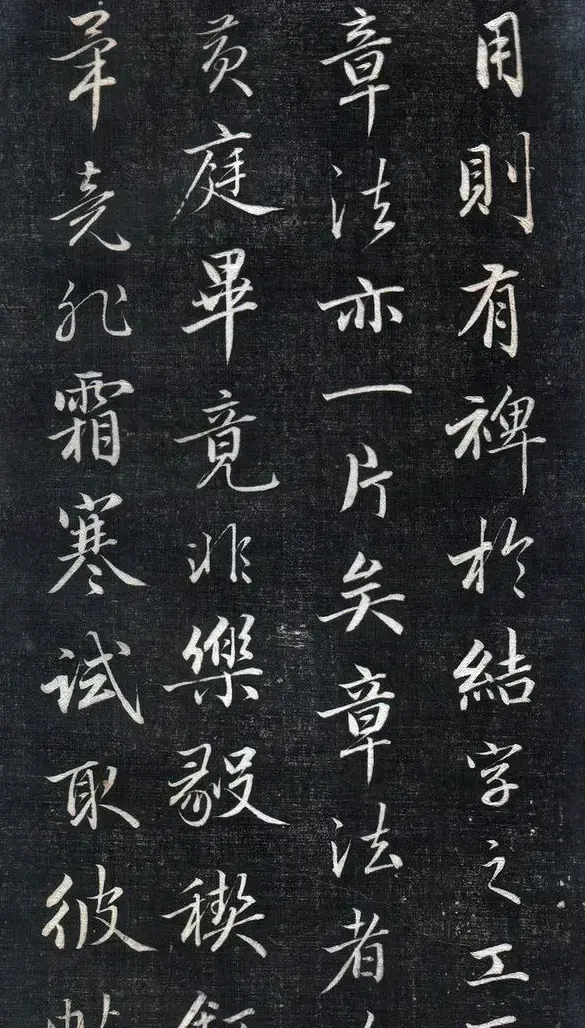 用則有裨於結字之工
章法亦一片矣章法者
黃庭畢竟非樂毅稧敘
筆竟非霜寒試取彼帖